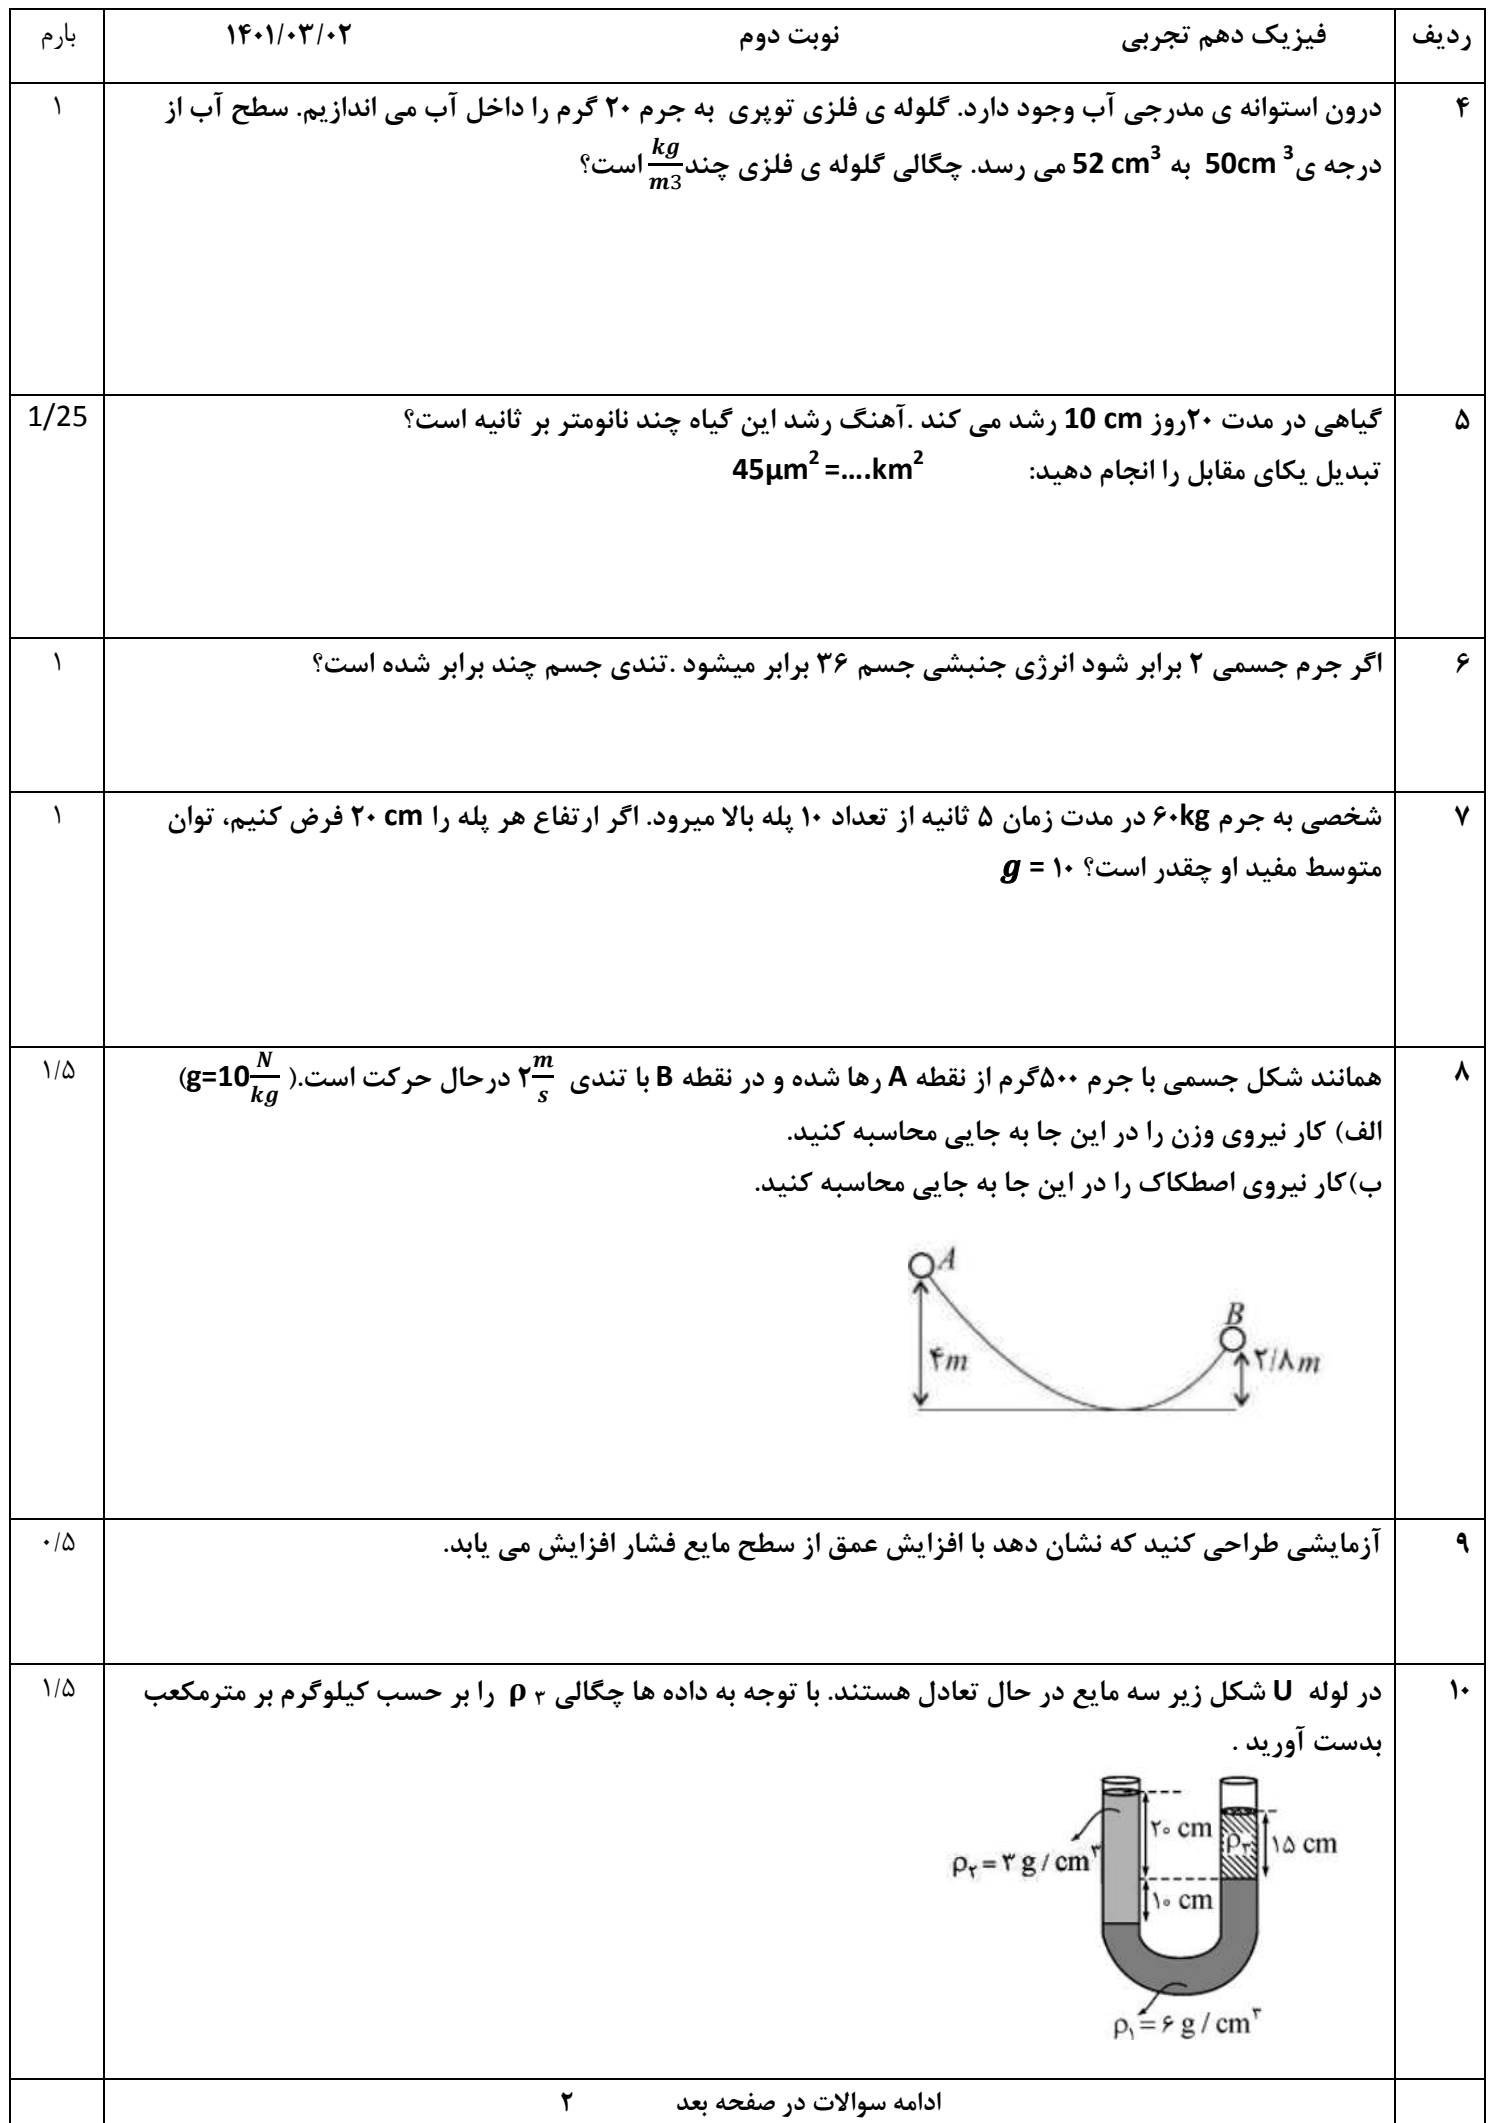 ردیف فیزیک دهم تجربی نوبت دوم ۱۴۰۱/۰۳/۰۲ بارم
۴ درون استوانه ی مدرجی آب وجود دارد. گلوله ی فلزی توپری به جرم ۲۰ گرم را داخل آب می اندازیم. سطح آب از ۱
درجه ی 50cm³ به 52 cm³ می رسد. چگالی گلوله ی فلزی چند kg/m3 است؟
۵ گیاهی در مدت ۲۰روز 10 cm رشد می کند .آهنگ رشد این گیاه چند نانومتر بر ثانیه است؟ 1/25
تبدیل یکای مقابل را انجام دهید: 45µm² =....km²
۶ اگر جرم جسمی ۲ برابر شود انرژی جنبشی جسم ۳۶ برابر میشود .تندی جسم چند برابر شده است؟ ۱
۷ شخصی به جرم ۶۰kg در مدت زمان ۵ ثانیه از تعداد ۱۰ پله بالا میرود. اگر ارتفاع هر پله را ۲۰ cm فرض کنیم، توان ۱
متوسط مفید او چقدر است؟ g = ۱۰
۸ همانند شکل جسمی با جرم ۵۰۰گرم از نقطه A رها شده و در نقطه B با تندی ۲ m/s درحال حرکت است.( g=10 N/kg) ۱/۵
الف) کار نیروی وزن را در این جا به جایی محاسبه کنید.
ب)کار نیروی اصطکاک را در این جا به جایی محاسبه کنید.
A
B
۴m
۲/۸m
۹ آزمایشی طراحی کنید که نشان دهد با افزایش عمق از سطح مایع فشار افزایش می یابد. ۰/۵
۱۰ در لوله U شکل زیر سه مایع در حال تعادل هستند. با توجه به داده ها چگالی ρ ۳ را بر حسب کیلوگرم بر مترمکعب ۱/۵
بدست آورید .
۲۰ cm
ρ۳
۱۵ cm
ρ۲ = ۳ g / cm³
۱۰ cm
ρ۱ = ۶ g / cm³
ادامه سوالات در صفحه بعد ۲